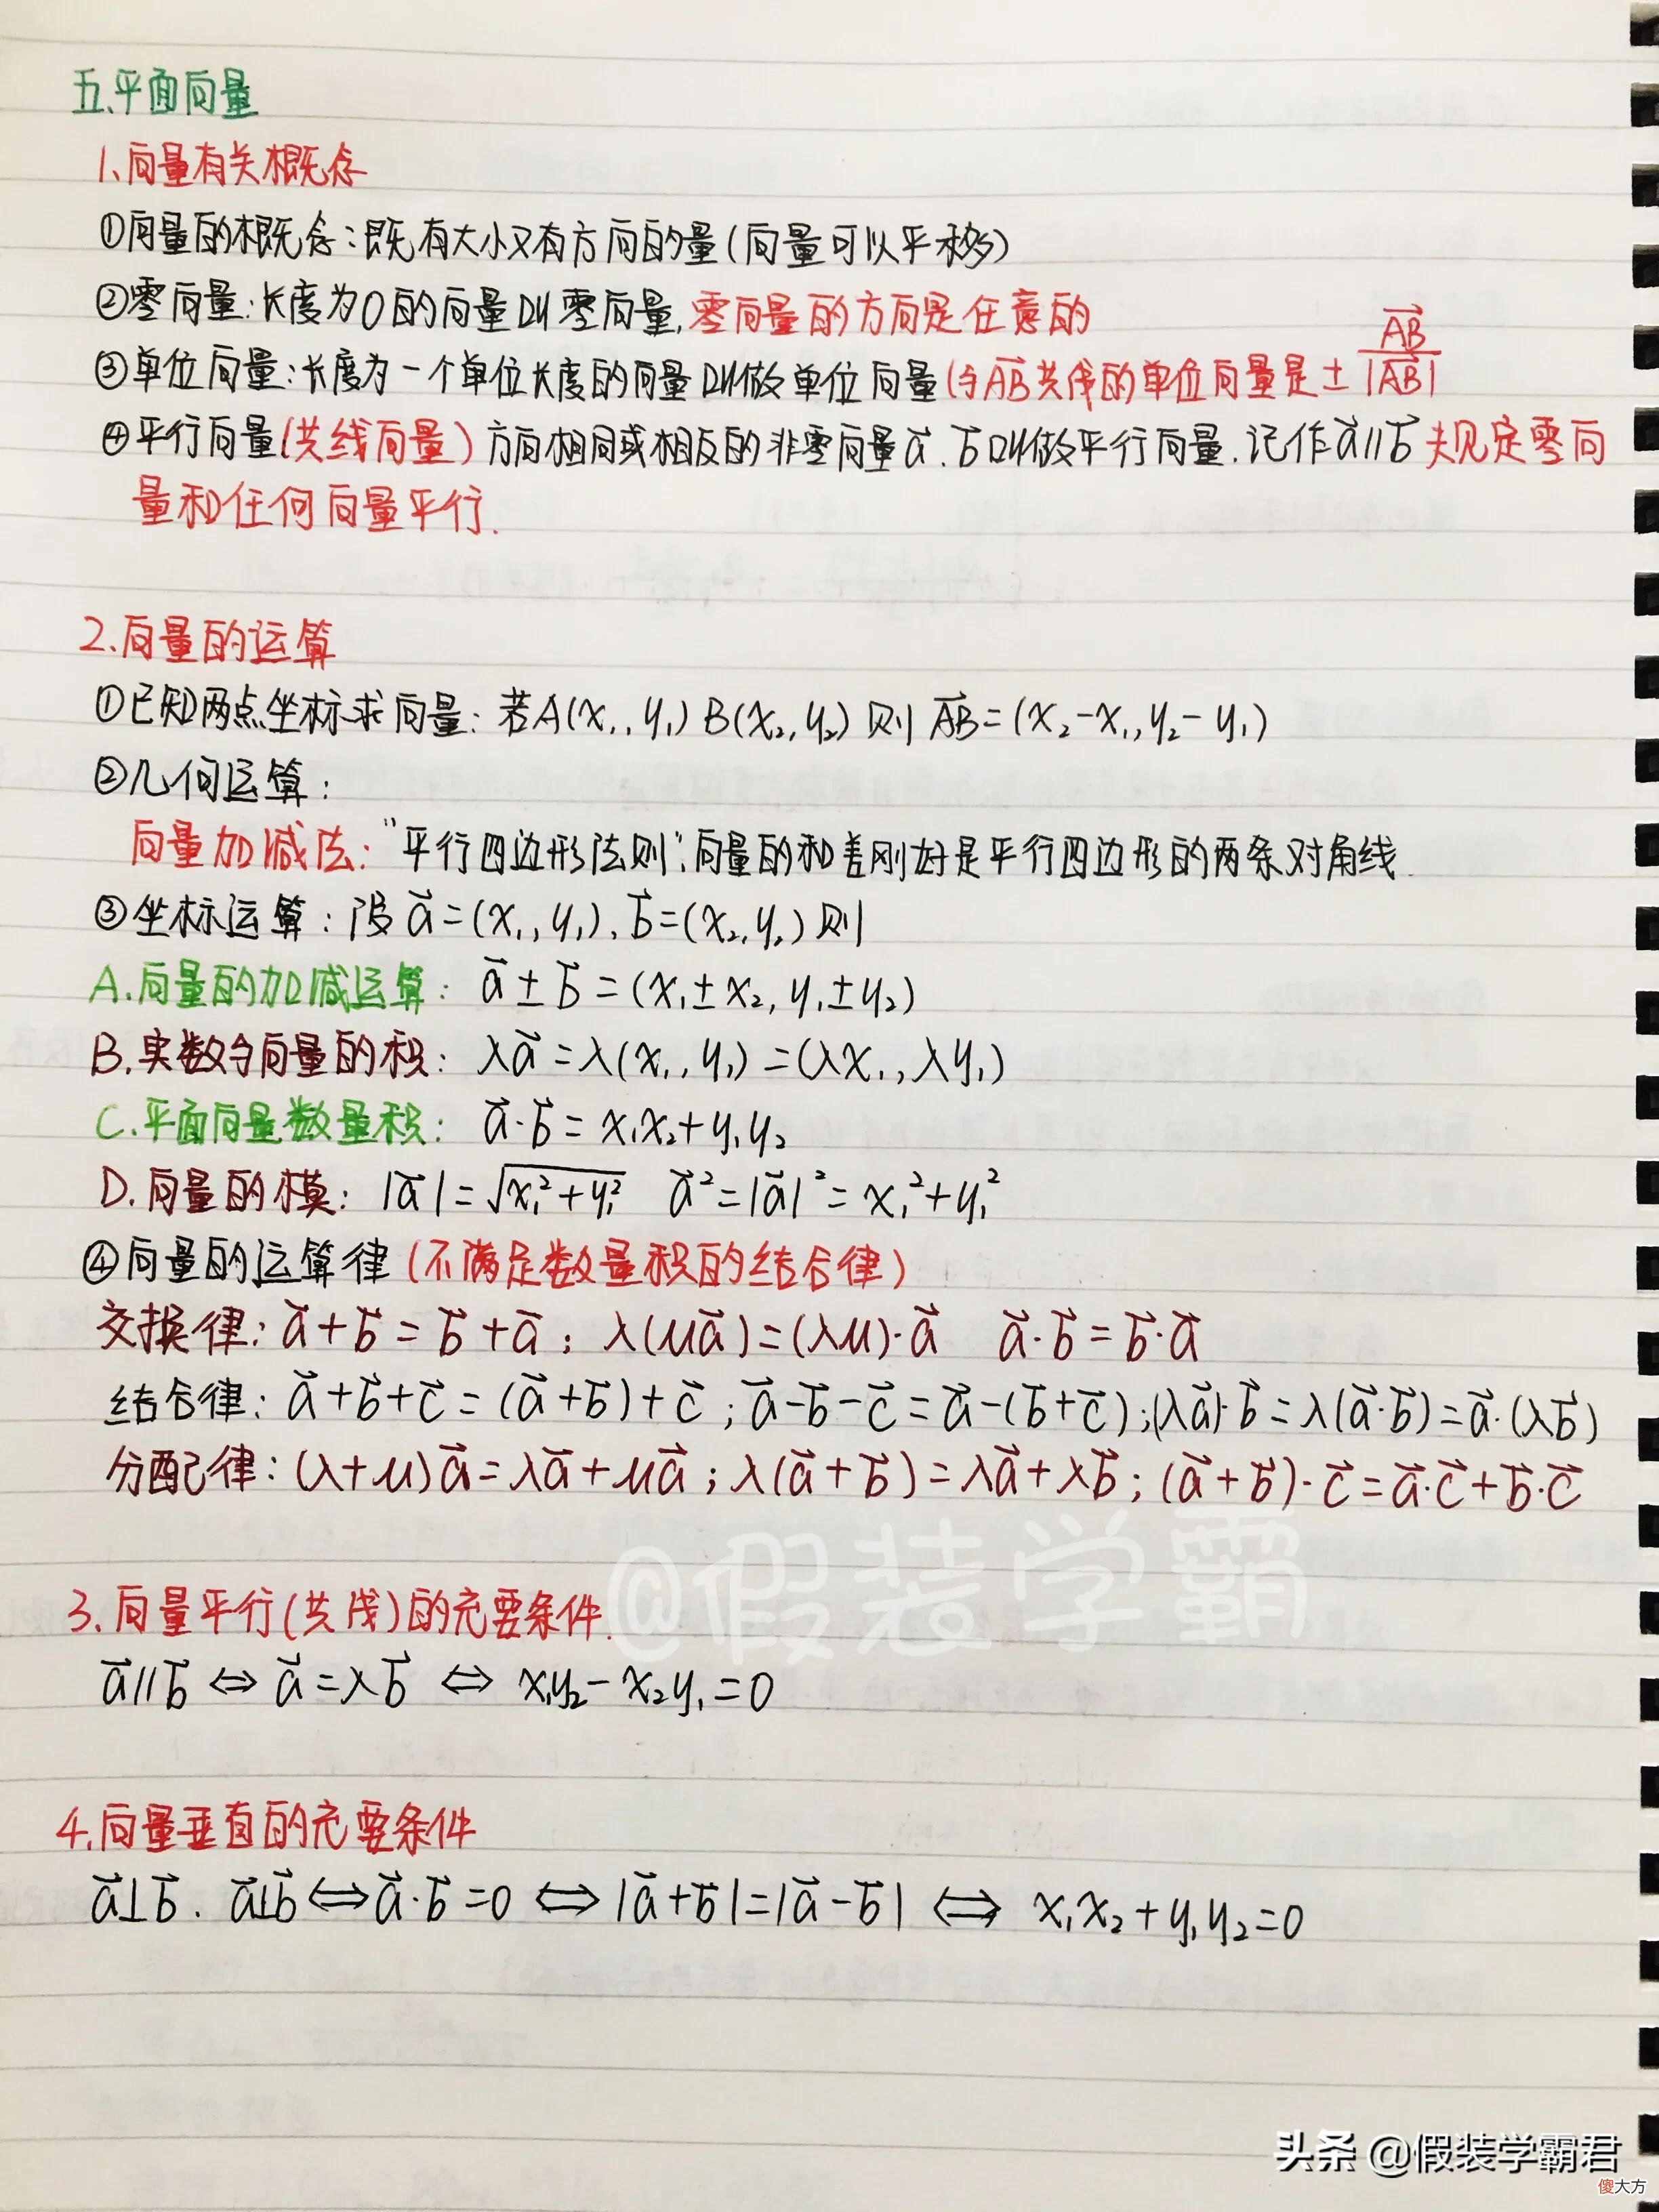 五.平面向量
1、向量有关概念
①向量的概念:既有大小又有方向的量(向量可以平移)
②零向量:长度为0的向量叫零向量,零向量的方向是任意的
③单位向量:长度为一个单位长度的向量叫做单位向量(与A⃗B⃗共线的单位向量是±A⃗B⃗/|A⃗B⃗|
④平行向量(共线向量)方向相同或相反的非零向量a⃗.b⃗叫做平行向量.记作a⃗∥b⃗ 规定零向
量和任何向量平行.
2.向量的运算
①已知两点坐标求向量:若A(x₁,y₁)B(x₂,y₂)则A⃗B⃗=(x₂-x₁,y₂-y₁)
②几何运算:
向量加减法:"平行四边形法则":向量的和差刚好是平行四边形的两条对角线.
③坐标运算:设a⃗=(x₁,y₁),b⃗=(x₂,y₂)则
A.向量的加减运算:a⃗±b⃗=(x₁±x₂,y₁±y₂)
B.实数与向量的积:λa⃗=λ(x₁,y₁)=(λx₁,λy₁)
C.平面向量数量积:a⃗·b⃗=x₁x₂+y₁y₂
D.向量的模:|a⃗|=√(x₁²+y₁²) a⃗²=|a⃗|²=x₁²+y₁²
④向量的运算律(不满足数量积的结合律)
交换律:a⃗+b⃗=b⃗+a⃗;λ(μa⃗)=(λμ)·a⃗ a⃗·b⃗=b⃗·a⃗
结合律:a⃗+b⃗+c⃗=(a⃗+b⃗)+c⃗;a⃗-b⃗-c⃗=a⃗-(b⃗+c⃗);(λa⃗)·b⃗=λ(a⃗·b⃗)=a⃗·(λb⃗)
分配律:(λ+μ)a⃗=λa⃗+μa⃗;λ(a⃗+b⃗)=λa⃗+λb⃗;(a⃗+b⃗)·c⃗=a⃗·c⃗+b⃗·c⃗
@假装学霸
3.向量平行(共线)的充要条件.
a⃗∥b⃗⇔a⃗=λb⃗⇔x₁y₂-x₂y₁=0
4.向量垂直的充要条件
a⃗⊥b⃗.a⃗⊥b⃗⇔a⃗·b⃗=0⇔|a⃗+b⃗|=|a⃗-b⃗|⇔x₁x₂+y₁y₂=0
头条 @假装学霸君
傻大方